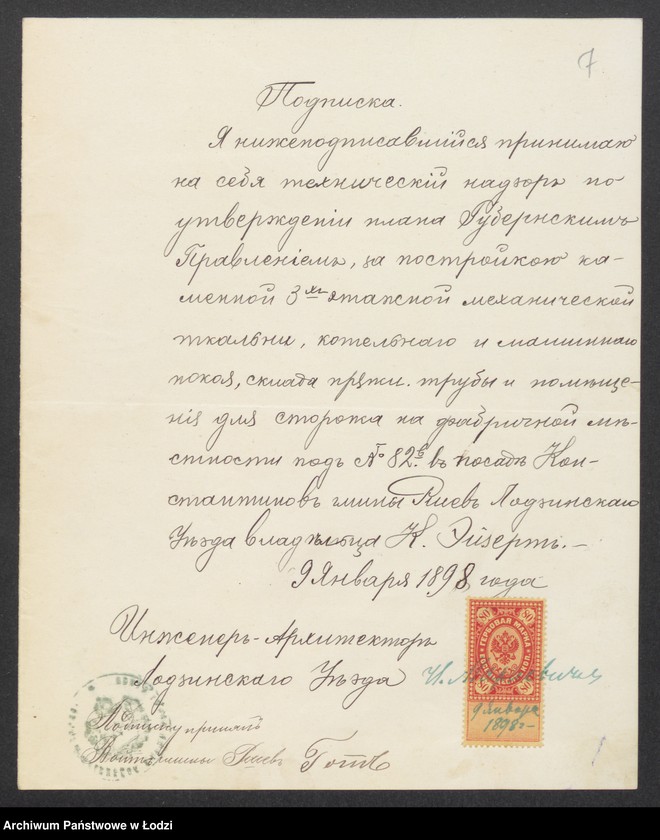 7
Подписка.
Я нижеподписавшійся принимаю
на себя техническій надзоръ по
утвержденіи плана Губернскимъ
Правленіемъ, за постройкою ка-
менной 3хъ этажной механической
ткальни, котельнаго и машиннаго
покоя, склада пряжи. трубы и помѣще-
нія для сторожа на фабричной мѣ-
стности подъ № 82б. въ посадѣ Кон-
стантиновъ гмины Рževъ Лодзинскаго
Уѣзда владѣльца К. Эйзертъ. –
9 Января 1898 года
Инженеръ-Архитекторъ
Лодзинскаго Уѣзда
80 80
ГЕРБОВАЯ МАРКА
80 80
9 Января
1898 г –
Подписку принялъ
Войтъ гмины
Archiwum Państwowe w Łodzi